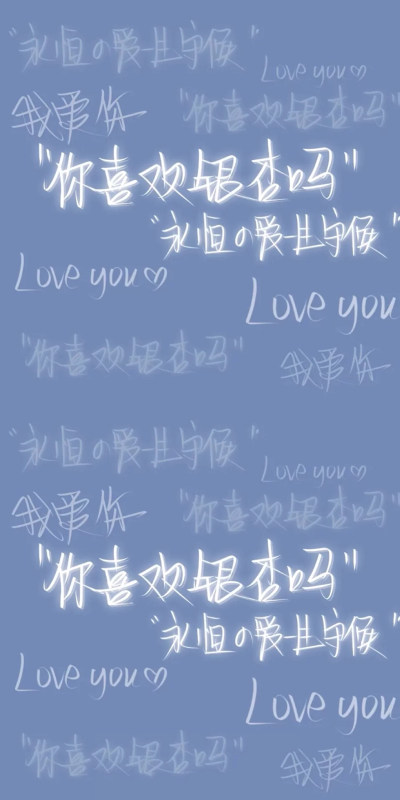 "永恒の爱一直守候"
Love you♡
我爱你
"你喜欢银杏吗"
"你喜欢银杏吗"
"永恒の爱一直守候"
Love you♡
Love you
"你喜欢银杏吗"
我爱你
"永恒の爱一直守候"
Love you♡
我爱你
"你喜欢银杏吗"
"你喜欢银杏吗"
"永恒の爱一直守候"
Love you♡
Love you
"你喜欢银杏吗"
我爱你